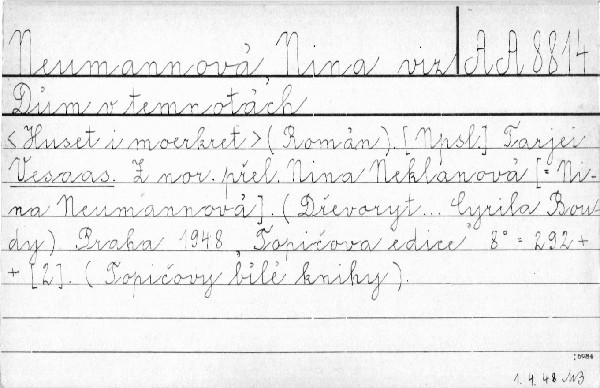 Neumannová Nina viz AA 8814
Dům v temnotách
<Huset i moerkret> (Román). [Npsl.] Tarjei
Vesaas. Z nor. přel. Nina Neklanová [= Ni-
na Neumannová]. (Dřevoryt... Cyrila Bou-
dy). Praha 1948 „Topičova edice" 8° = 292 +
+ [2]. (Topičovy bílé knihy).
1. 4. 48